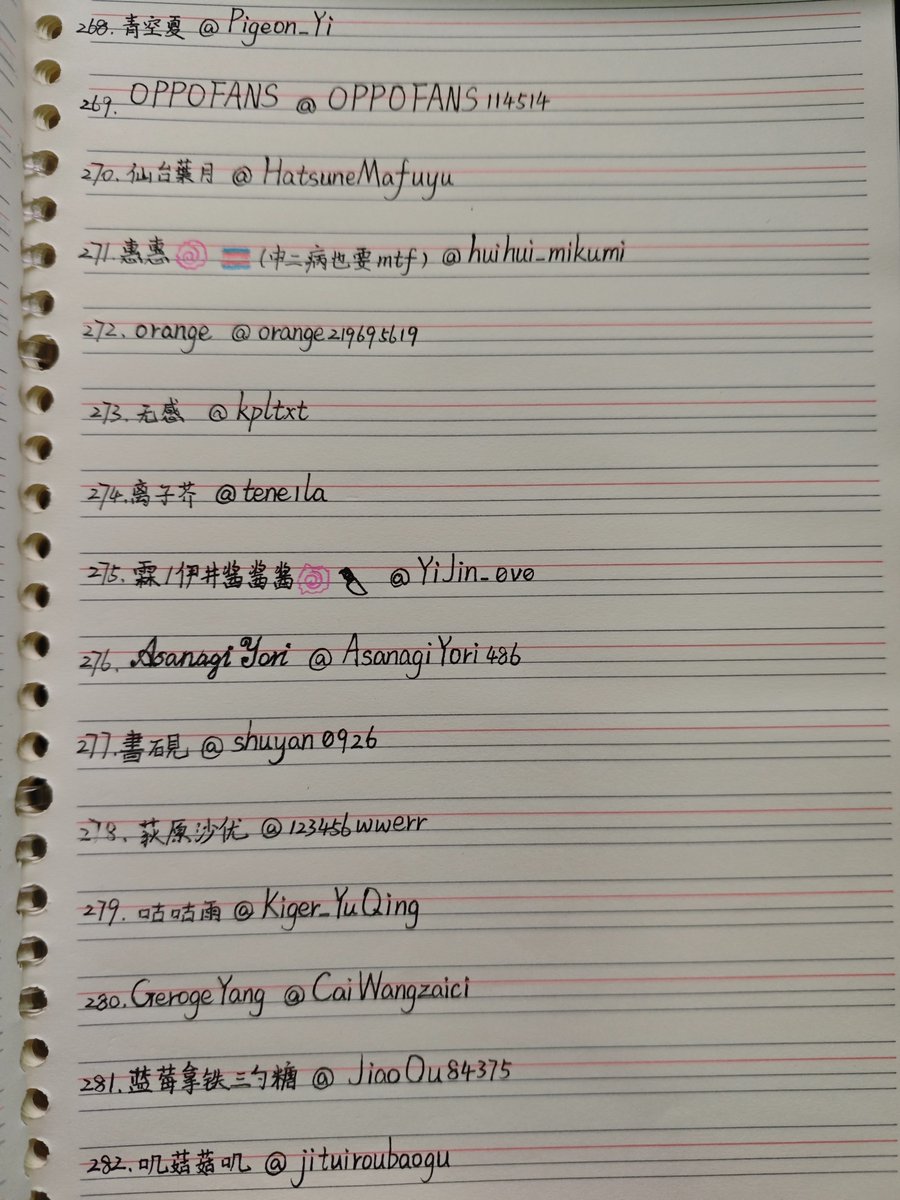 268. 青空夏 @Pigeon_Yi
269. OPPOFANS @OPPOFANS114514
270. 仙台葉月 @HatsuneMafuyu
271. 惠惠🍥🏳️‍⚧️(中二病也要mtf) @huihui_mikumi
272. orange @orange219695619
273. 无感 @kpltxt
274. 离子芥 @tene1la
275. 霖/伊井酱酱酱🍥🔪 @YiJin_ovo
276. Asanagi Yori @AsanagiYori486
277. 書硯 @shuyan0926
278. 荻原沙优 @123456wwerr
279. 咕咕雨 @Kiger_YuQing
280. GerogeYang @CaiWangzaici
281. 蓝莓拿铁三勺糖 @JiaoQu84375
282. 叽菇菇叽 @jituiroubaogu